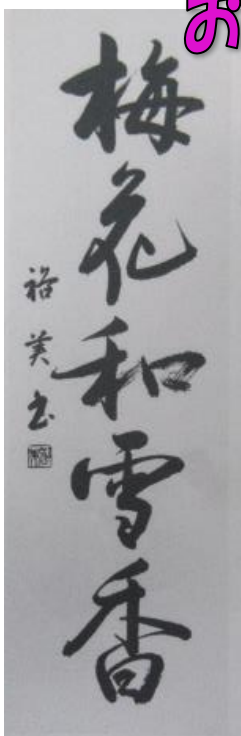 お
梅花和雪香
裕美书